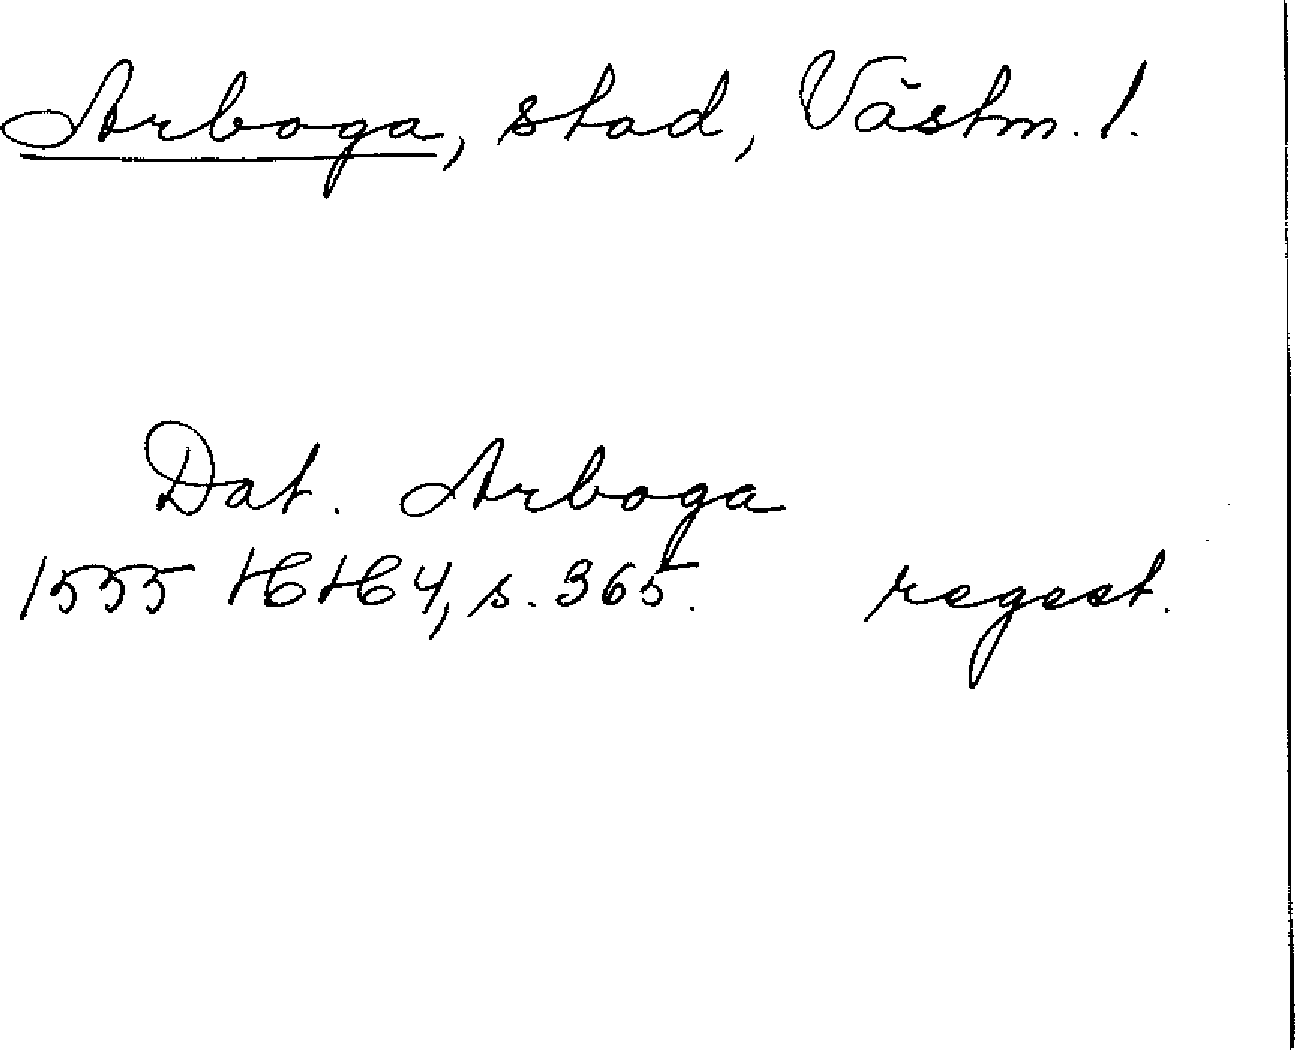 Arboga, stad, Västm. l.
Dat. Arboga
1555 HH 4, s. 365. regest.